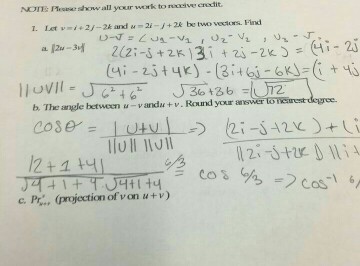 NOTE: Please show all your work to receive credit.
1. Let v = i + 2j - 2k and u = 2i - j + 2k be two vectors. Find
u-v = < u₁ - v₁ , u₂ - v₂ , u₃ - v
a. ||2u - 3v||
2(2i - j + 2k) 3(i + 2j - 2k) = (4i - 2j
(4i - 2j + 4k) - (3i + 6j - 6k) = (i + 4j
||UV|| = √6² + 6² √36 + 36 = √72
b. The angle between u - v and u + v. Round your answer to nearest degree.
cos θ = |U+V| / ||U|| ||V|| => (2i - j + 2k) + (i
||2i - j + 2k|| ||i +
|2 + 1 + 4| / √4 + 1 + 4 √4 + 1 + 4 6/3 cos 6/3 => cos⁻¹ 6/
c. (projection of v on u + v)